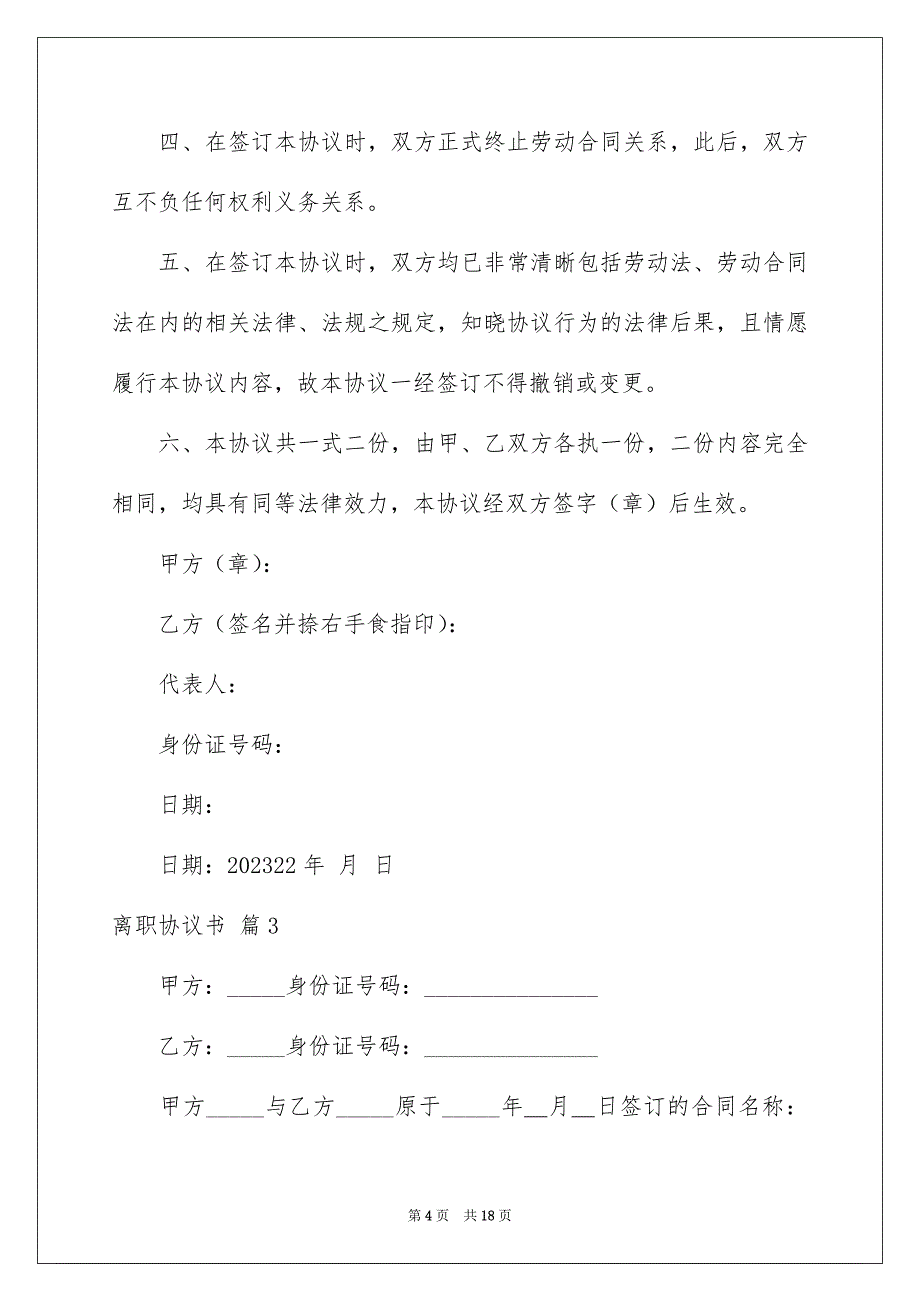 四、在签订本协议时，双方正式终止劳动合同关系，此后，双方
互不负任何权利义务关系。
五、在签订本协议时，双方均已非常清晰包括劳动法、劳动合同
法在内的相关法律、法规之规定，知晓协议行为的法律后果，且情愿
履行本协议内容，故本协议一经签订不得撤销或变更。
六、本协议共一式二份，由甲、乙双方各执一份，二份内容完全
相同，均具有同等法律效力，本协议经双方签字（章）后生效。
甲方（章）：
乙方（签名并捺右手食指印）：
代表人：
身份证号码：
日期：
日期：202322年 月 日
离职协议书 篇3
甲方：_____身份证号码：_______________
乙方：_____身份证号码：_______________
甲方_____与乙方_____原于_____年__月__日签订的合同名称：
第4页 共18页